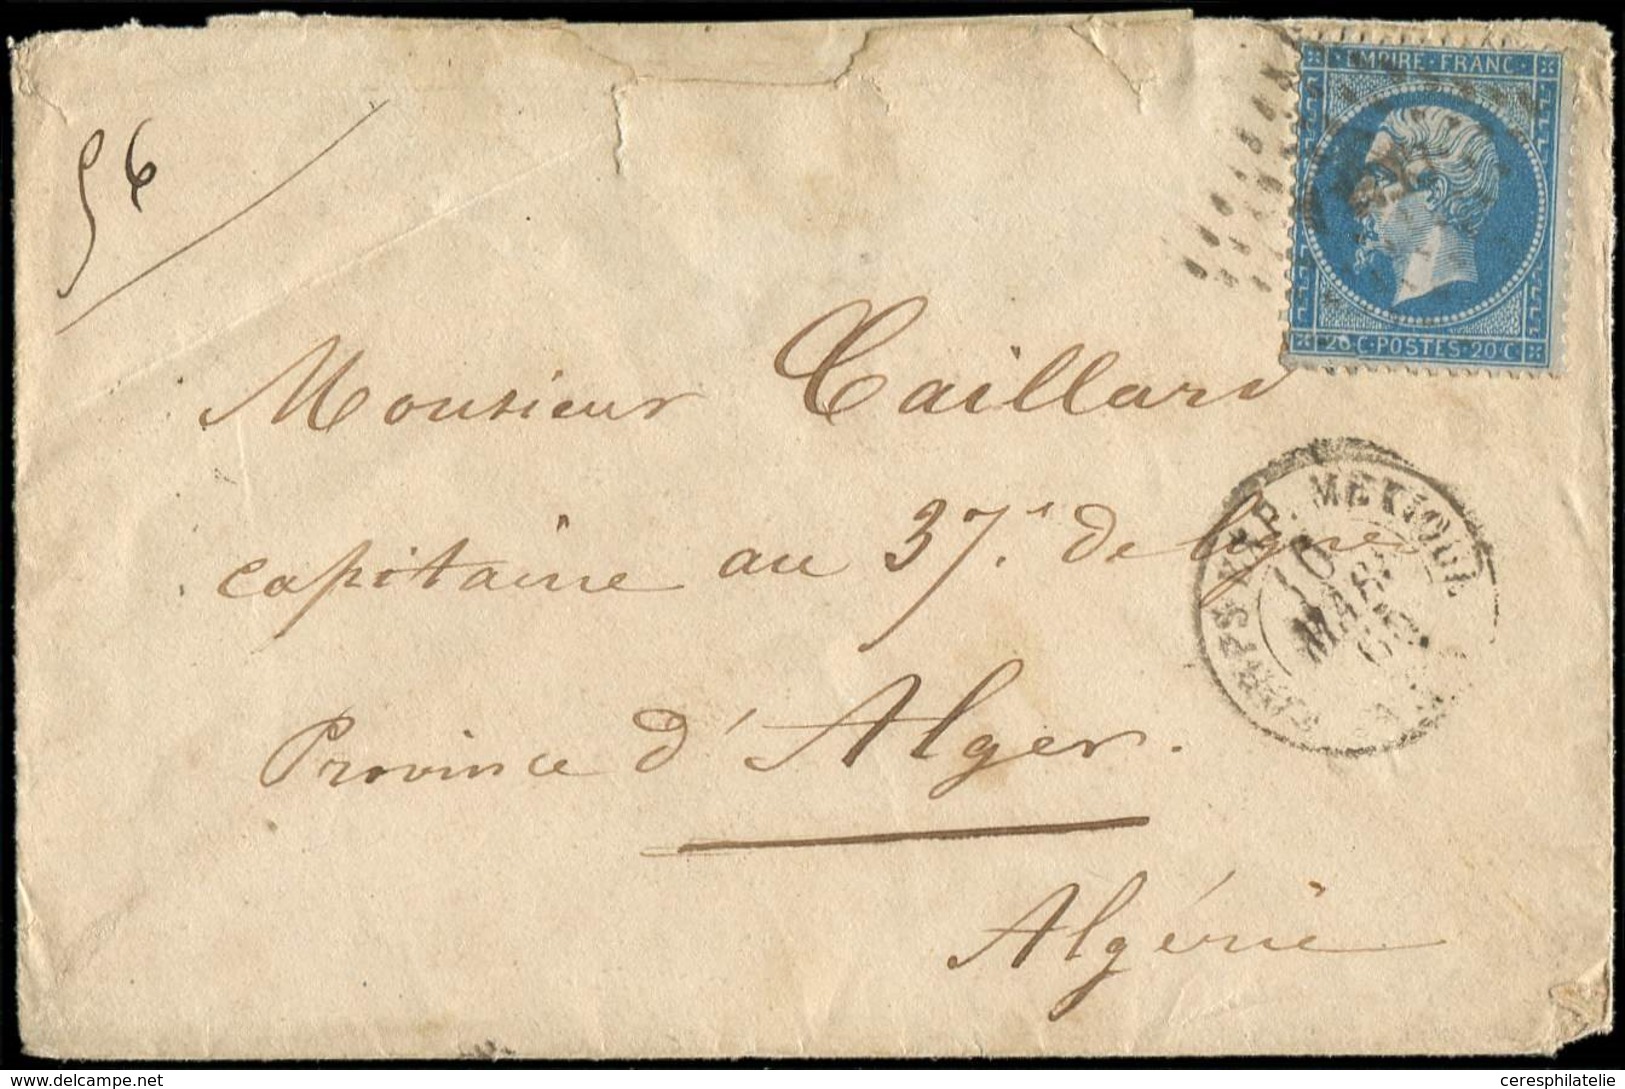 56
EMPIRE · FRANC ·
20 C · POSTES · 20 C
Monsieur Caillard
capitaine au 37.e de ligne
Province d'Alger.
Algérie
CORPS EXP. MEXIQUE
10
MARS
65
delcampe.net
ceresphilatelie